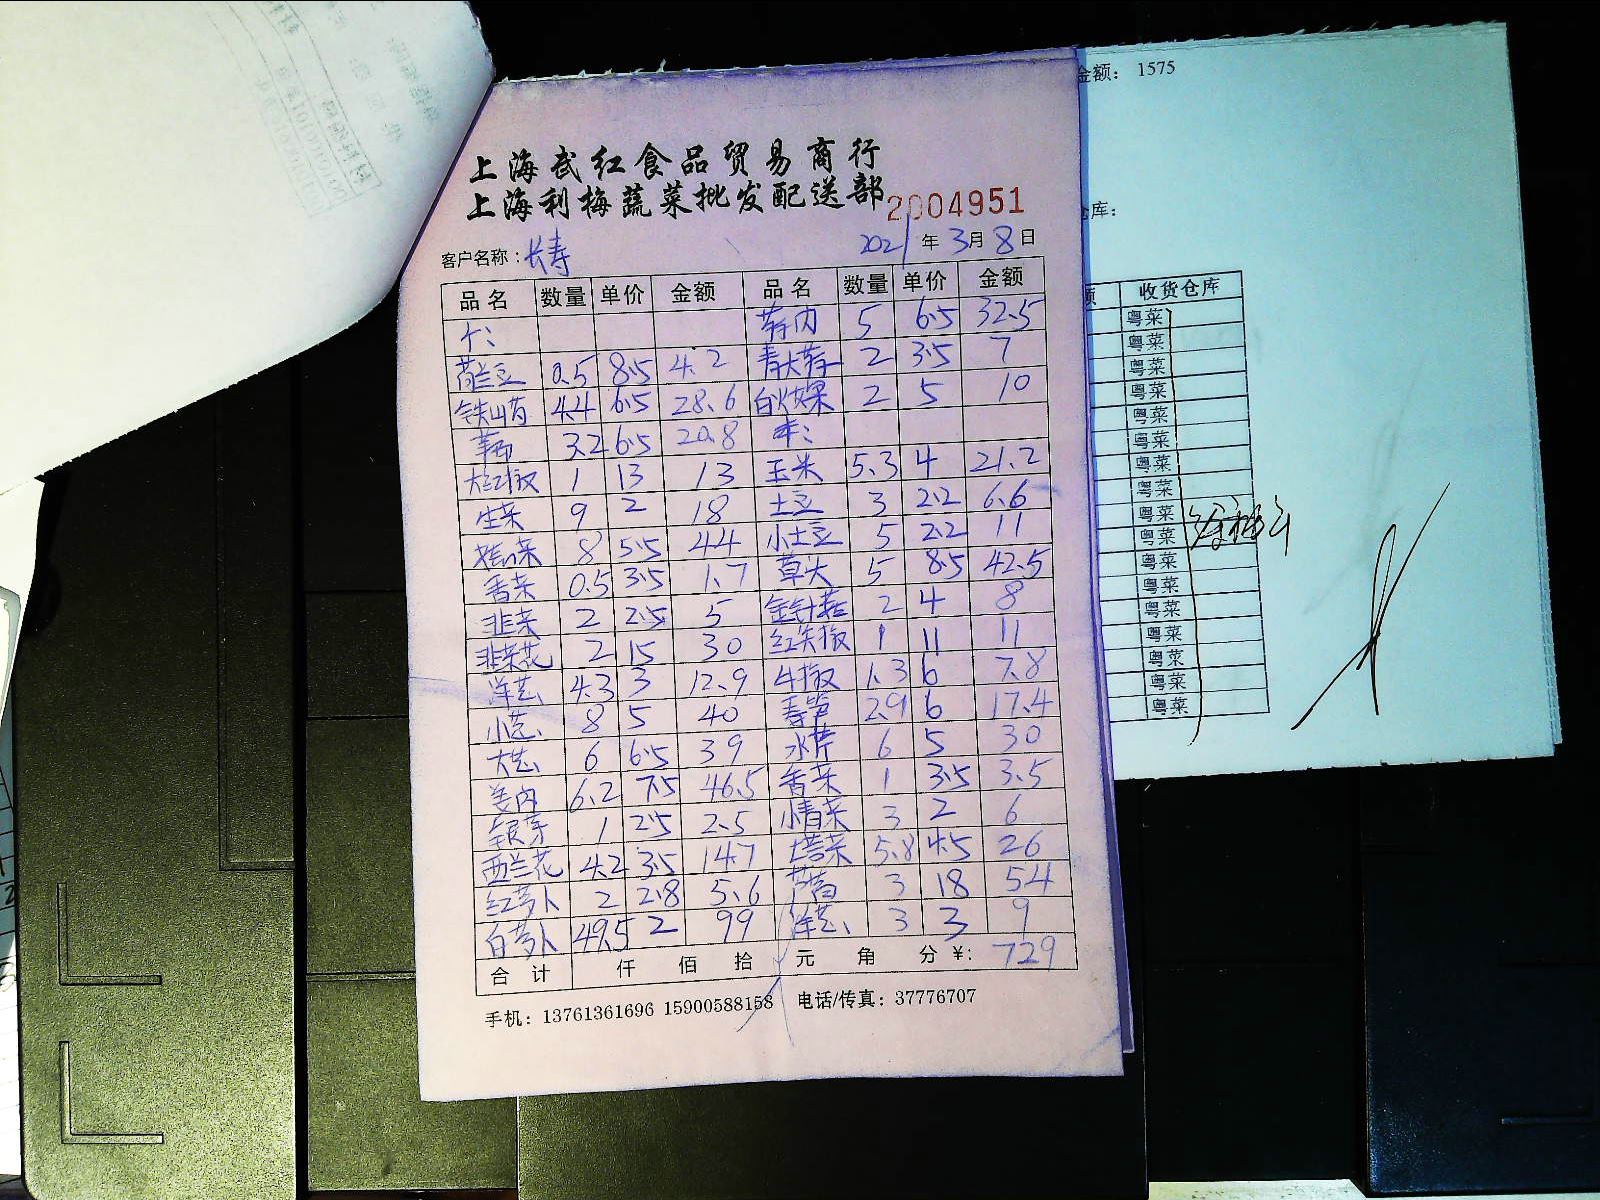 上海武红食品贸易商行
上海利梅蔬菜批发配送部 2004951
客户名称：长寿 2021年3月8日
品名 数量 单价 金额 品名 数量 单价 金额
5 6.5 32.5
荷兰豆 0.5 8.5 4.2 2 3.5 7
铁山药 4.4 6.5 28.6 2 5 10
3.2 6.5 20.8
大红椒 1 13 13 玉米 5.3 4 21.2
生菜 9 2 18 土豆 3 2.2 6.6
8 5.5 44 小土豆 5 2.2 11
香菜 0.5 3.5 1.7 草头 5 8.5 42.5
韭菜 2 2.5 5 金针菇 2 4 8
韭菜花 2 15 30 红尖椒 1 11 11
洋芝、 4.3 3 12.9 牛椒 1.3 6 7.8
小芝、 8 5 40 2.9 6 17.4
大芝、 6 6.5 39 水芹 6 5 30
姜肉 6.2 7.5 46.5 香菜 1 3.5 3.5
银芽 1 2.5 2.5 小青菜 3 2 6
西兰花 4.2 3.5 14.7 塔菜 5.8 4.5 26
红萝卜 2 2.8 5.6 3 18 54
白萝卜 49.5 2 99 洋芝、 3 3 9
合计 仟 佰 拾 元 角 分 ￥: 729
手机：13761361696 15900588158 电话/传真：37776707
金额： 1575
仓库：
收货仓库
粤菜
粤菜
粤菜
粤菜
粤菜
粤菜
粤菜
粤菜
粤菜
粤菜
粤菜
粤菜
粤菜
粤菜
粤菜
粤菜
粤菜